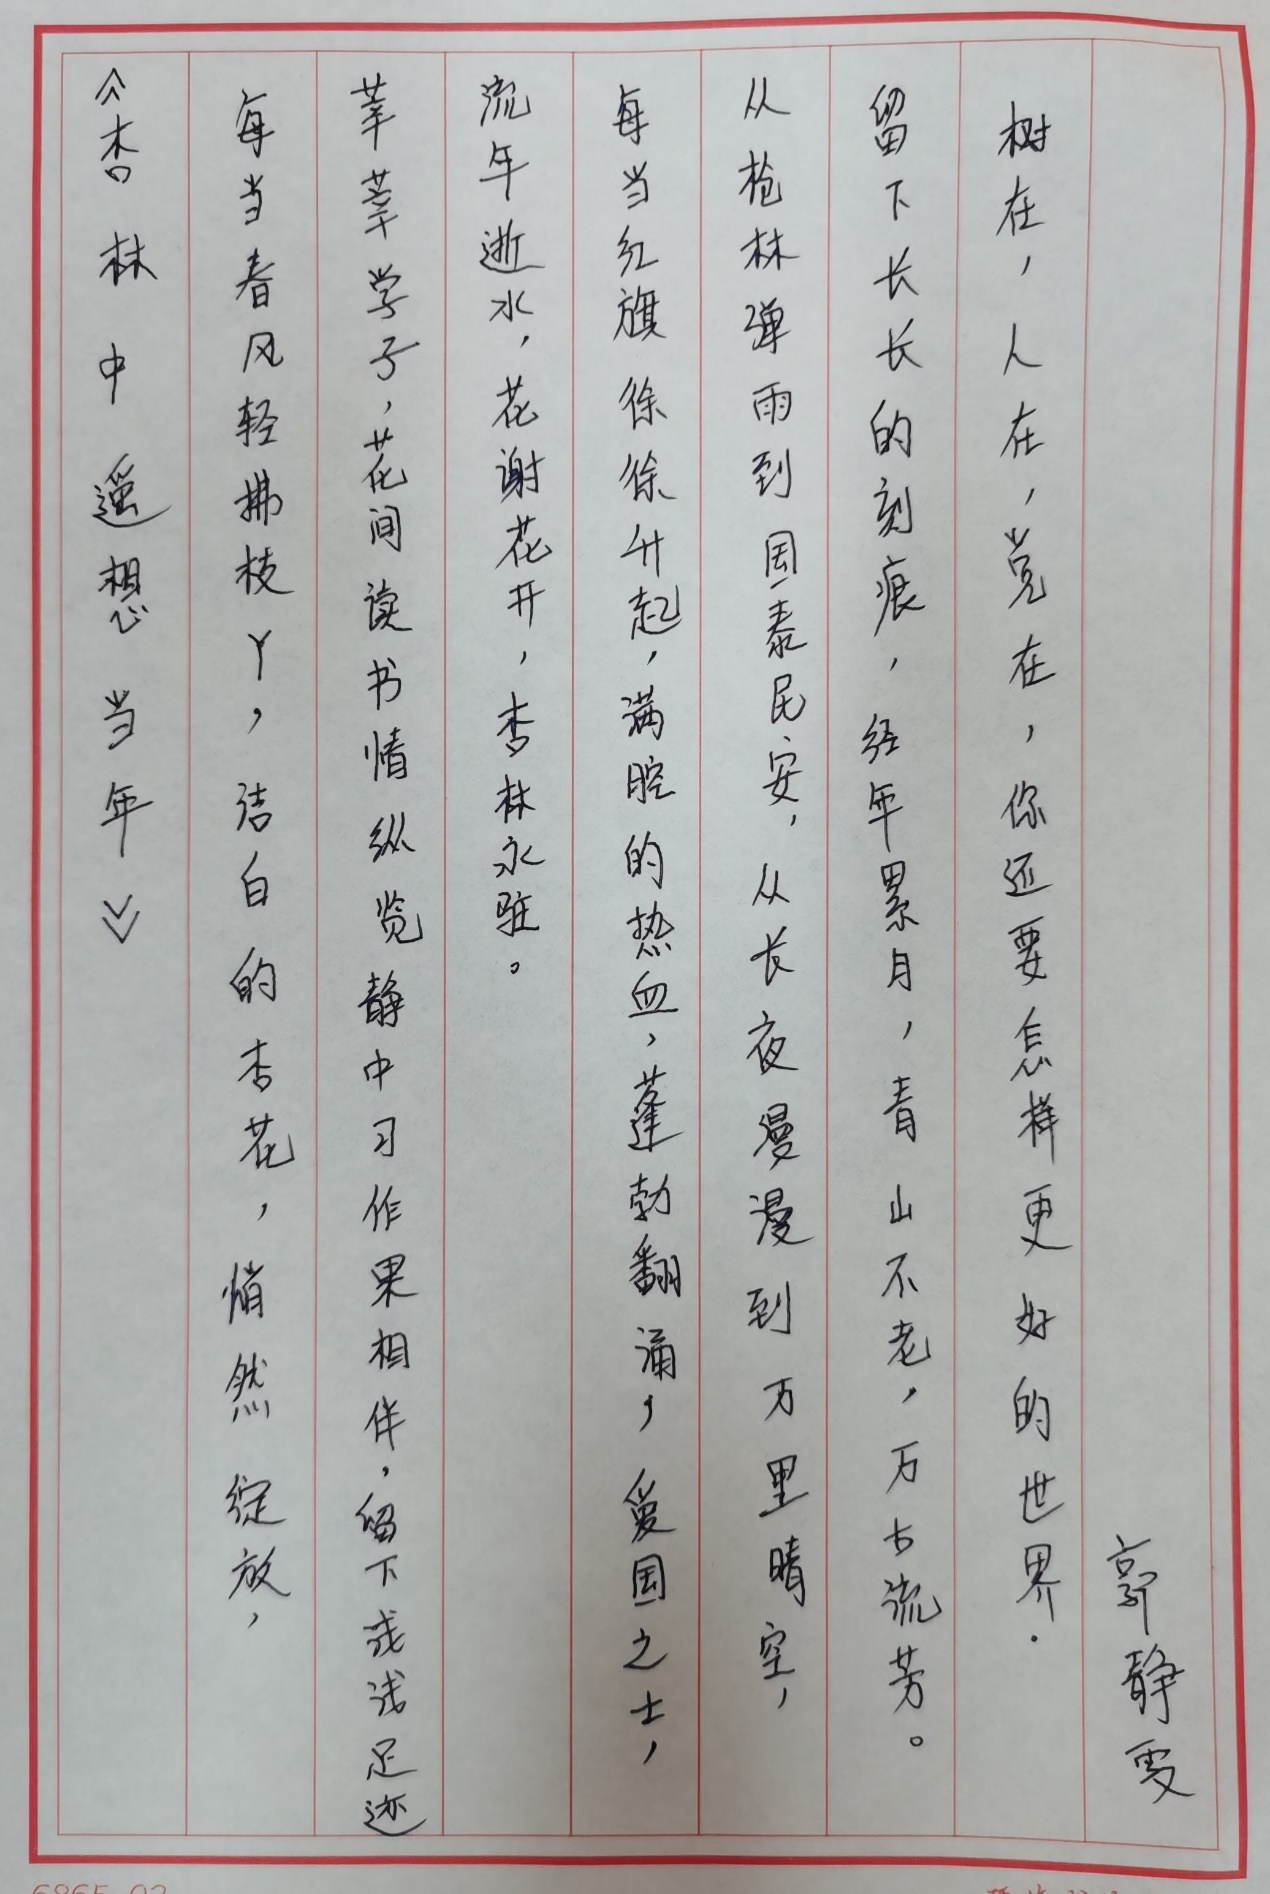 《杏林中遥想当年》
每当春风轻拂枝丫，洁白的杏花，悄然绽放，
莘莘学子，花间读书情纵览静中习作果相伴，留下或浅足迹
流年逝水，花谢花开，杏林永驻。
每当红旗徐徐升起，满腔的热血，蓬勃翻涌，爱国之士，
从枪林弹雨到国泰民安，从长夜漫漫到万里晴空，
留下长长的刻痕，经年累月，青山不老，万古流芳。
树在，人在，党在，你还要怎样更好的世界.
郭静雯
6865-02